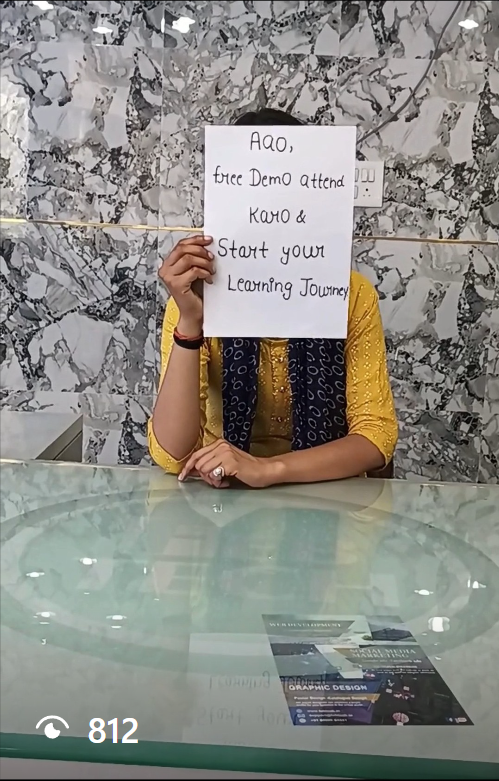 Aao,
free Demo attend
Karo &
Start your
Learning Journey
WEB DEVELOPMENT
SOCIAL MEDIA
MARKETING
GRAPHIC DESIGN
812